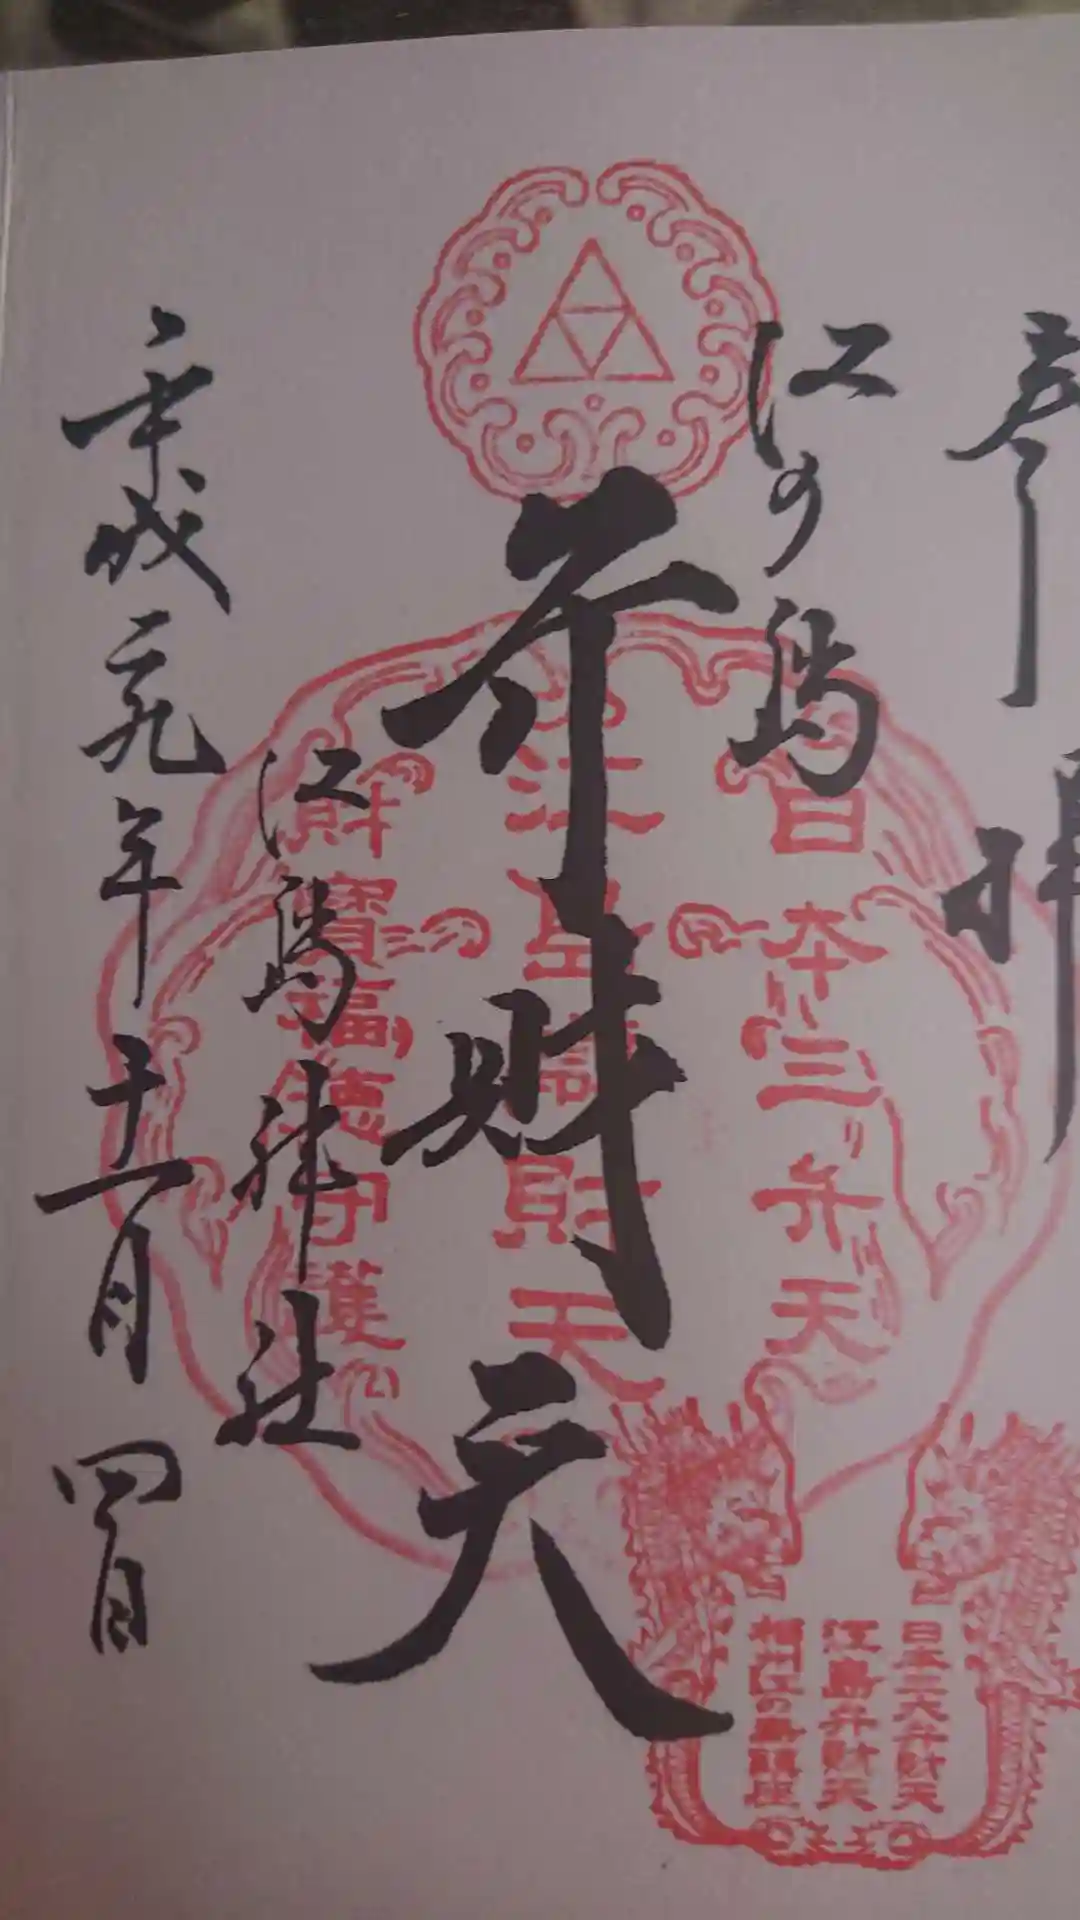 奉拝
江の島
弁財天
江島神社
平成二九年十一月四日
日本三弁天
江島辨財天
財寶福徳守護
日本三大弁財天
江島弁財天
相州江の島鎮座